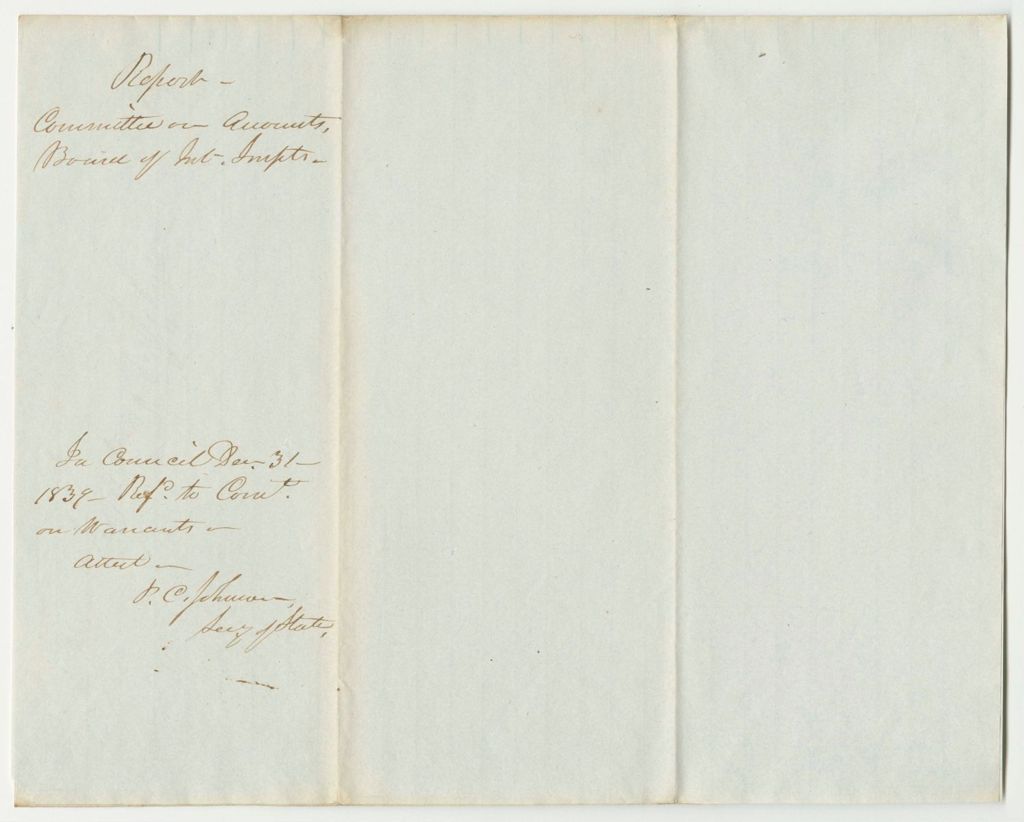 Report –
Committee on Accounts,
Board of Int. Impts –
In Council Dec. 31 –
1839 – Refd. to Comt.
on Warrants –
Attest –
P. C. Johnson –,
Secy of State,